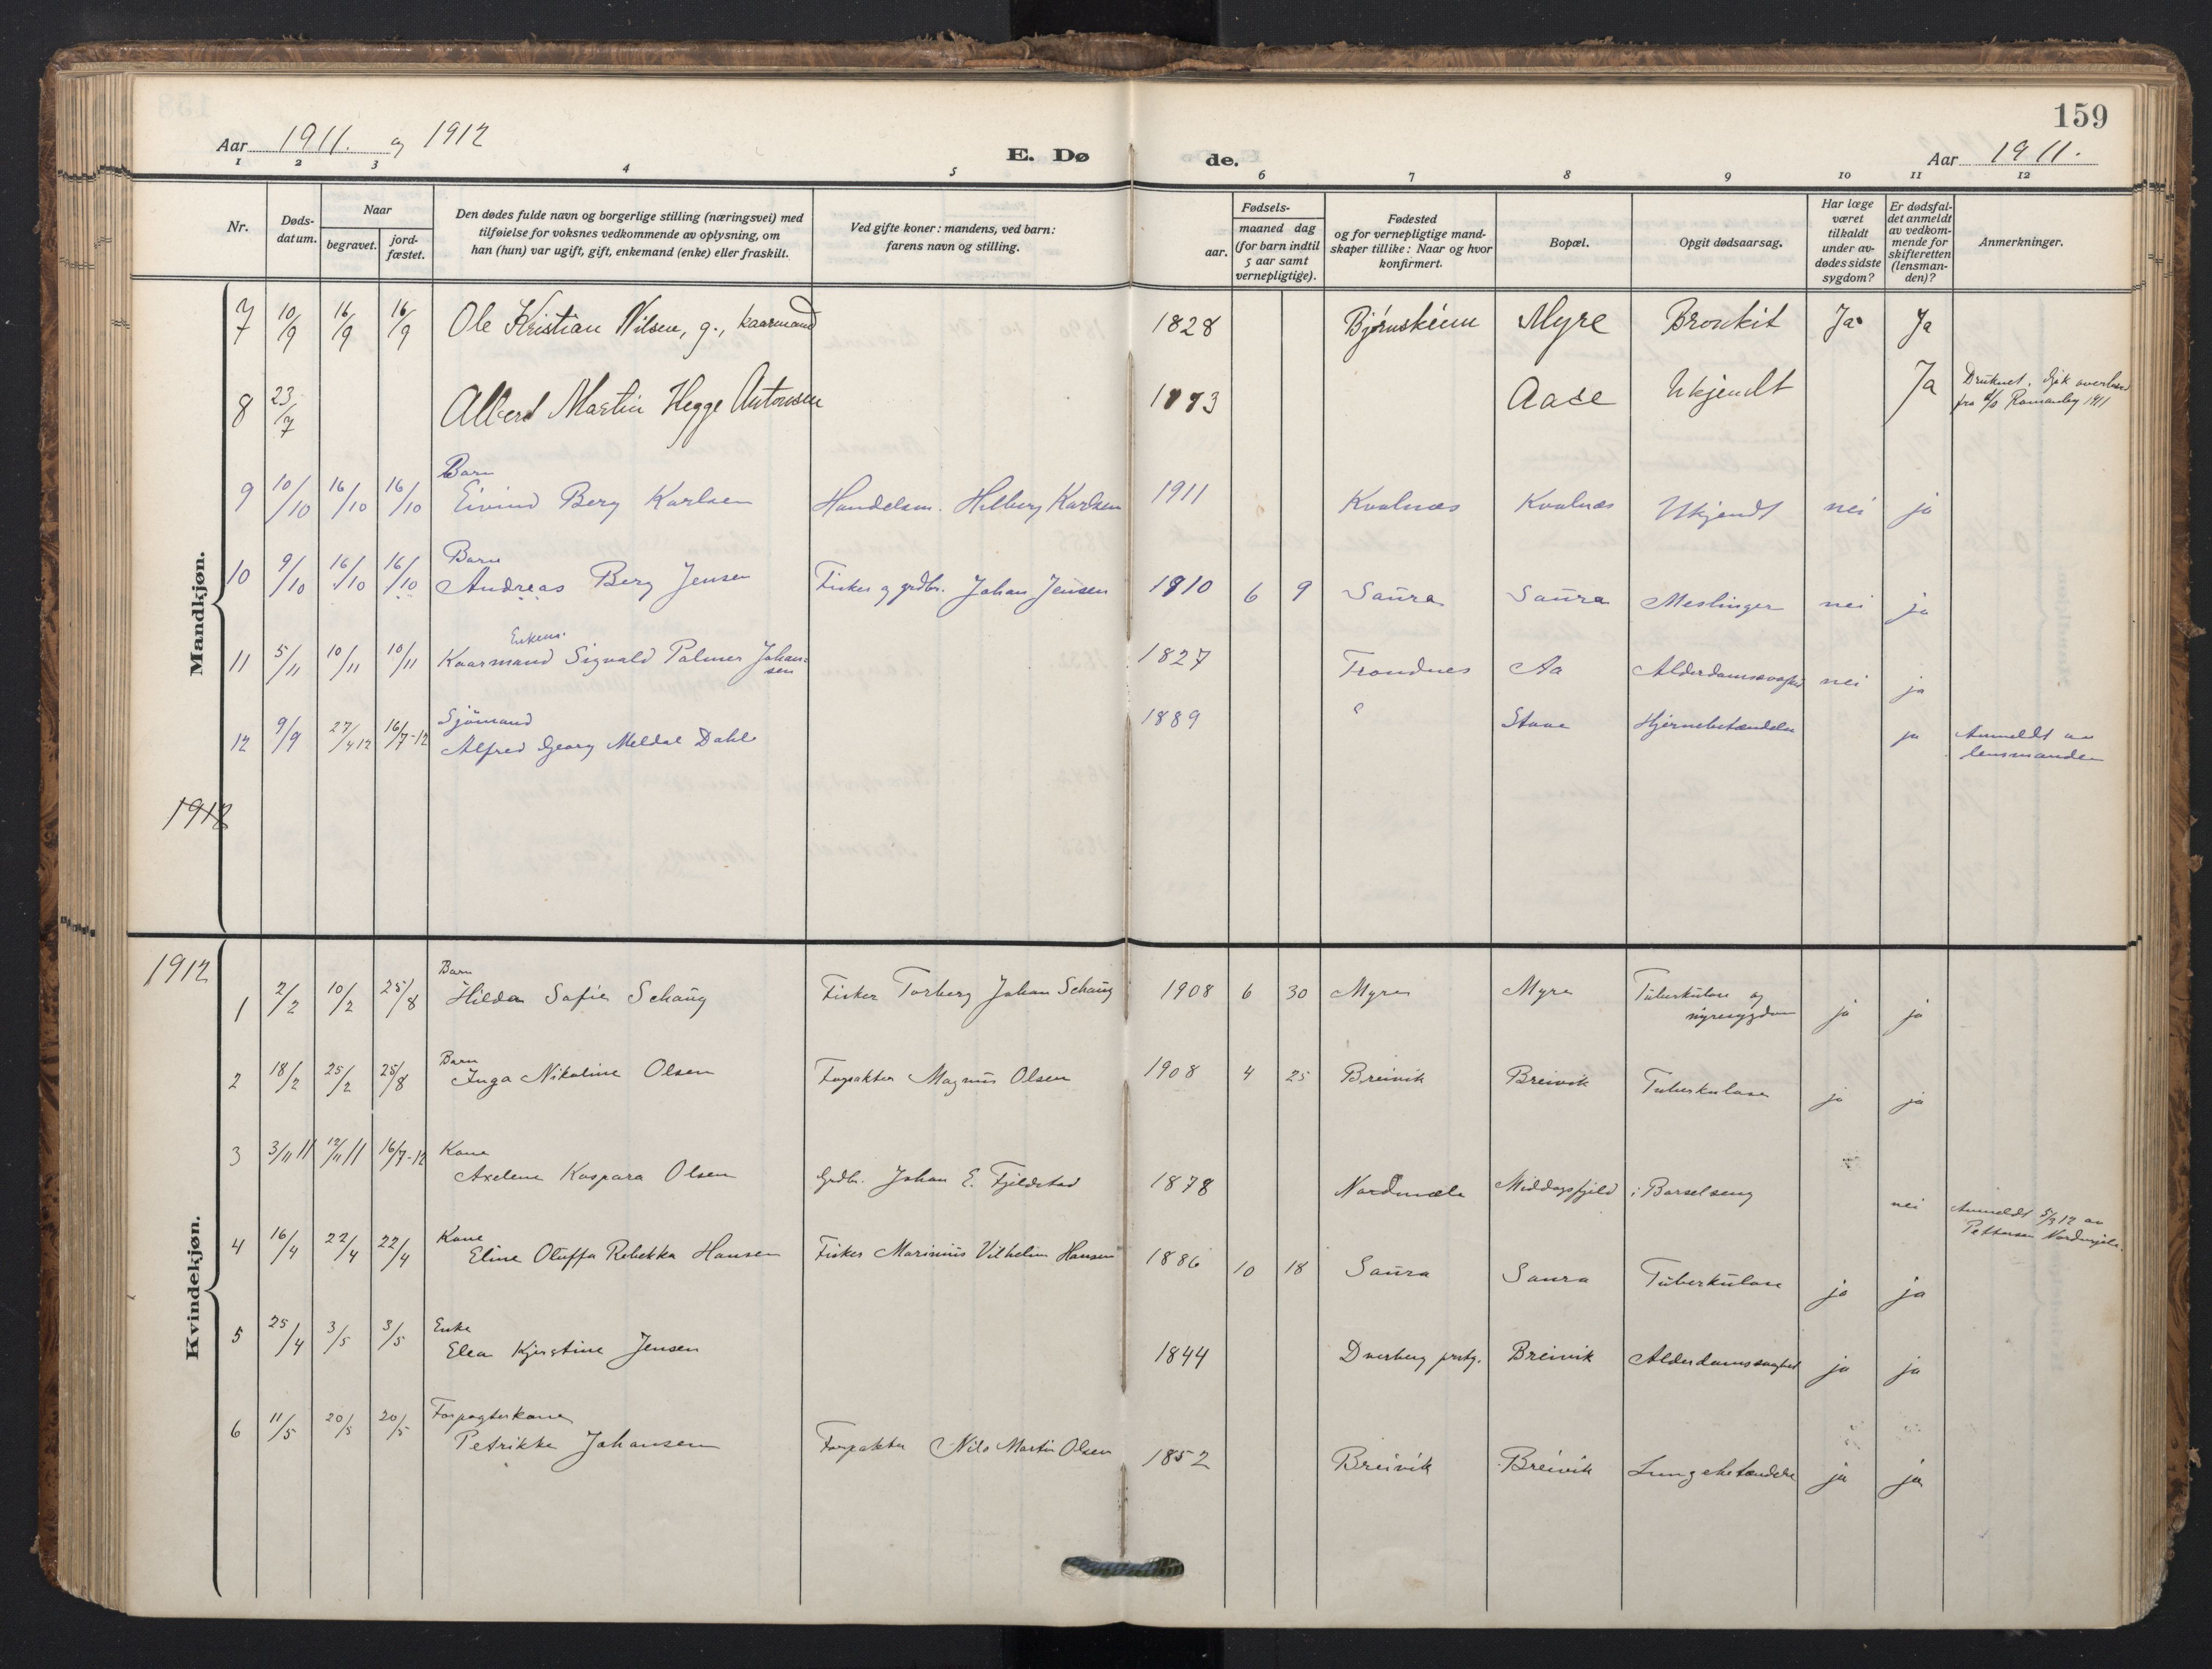 159
Aar 1911. og 1912
E. Dø de.
Aar 1911.
1 2 3 4 5 6 7 8 9 10 11 12
Nr.
Døds-
datum.
Naar
begravet.
jord-
fæstet.
Den dødes fulde navn og borgerlige stilling (næringsvei) med
tilføielse for voksnes vedkommende av oplysning, om
han (hun) var ugift, gift, enkemand (enke) eller fraskilt.
Ved gifte koner: mandens, ved barn:
farens navn og stilling.
Fødsels-
aar.
maaned dag
(for barn indtil
5 aar samt
vernepligtige).
Fødested
og for vernepligtige mand-
skaper tillike: Naar og hvor
konfirmert.
Bopæl.
Opgit dødsaarsag.
Har læge
været
tilkaldt
under av-
dødes sidste
sygdom?
Er dødsfal-
det anmeldt
av vedkom-
mende for
skifteretten
(lensman-
den)?
Anmerkninger.
Mandkjøn.
7 10/9 16/9 16/9 Ole Kristian Nilsen, g., kaarmand 1828 Bjørnskinn Myre Bronkit Ja Ja
8 23/7 Albert Martin Hegge Antonsen 1883 Aase Ukjendt Ja Druknet. Gik overbord
fra
9 10/10 16/10 16/10 Barn
Eivind Berg Karlsen Handelsm. Hilberg Karlsen 1911 Kvalnæs Kvalnæs Ukjendt nei ja
10 9/10 16/10 16/10 Barn
Andreas Berg Jensen Fisker og grdbr. Johan Jensen 1910 6 9 Saura Saura Meslinger nei ja
11 5/11 10/11 10/11 Enkem.
Kaarmand Sigvald Palmer Johan-
sen 1827 Trondnes Aa Alderdomssvaghed nei ja
12 9/9 27/4 12 16/7-12 Sjömand
Alfred Georg Meldal Dahl 1889 Staae Hjernebetændelse ja Anmeldt av
lensmanden
1912
1912
Kvindekjøn.
1 2/2 10/2 25/8 Barn
Hilda Sofie Schaug Fisker Torberg Johan Schaug 1908 6 30 Myre Myre Tuberkulose og
nyresygdom ja ja
2 18/2 25/2 25/8 Barn
Inga Nikoline Olsen Forpakter Magnus Olsen 1908 4 25 Breivik Breivik Tuberkulose ja ja
3 3/11 11 12/11 11 16/7-12 Kone
Axeline Kaspara Olsen Grdbr. Johan E. Fjeldstad 1878 Nordmæle Middagsfjeld i Barselseng nei Anmeldt 5/3 12 av
Pettersen Nordmjele.
4 16/4 22/4 22/4 Kone
Eline Oluffa Rebekka Hansen Fisker Marinius Vilhelm Hansen 1886 10 18 Saura Saura Tuberkulose ja ja
5 25/4 3/5 3/5 Enke
Elea Kjerstine Jensen 1844 Dverberg prstg. Breivik Alderdomssvaghed ja ja
6 11/5 20/5 20/5 Forpagterkone
Petrikke Johansen Forpakter Nils Martin Olsen 1852 Breivik Breivik Lungebetændelse ja ja